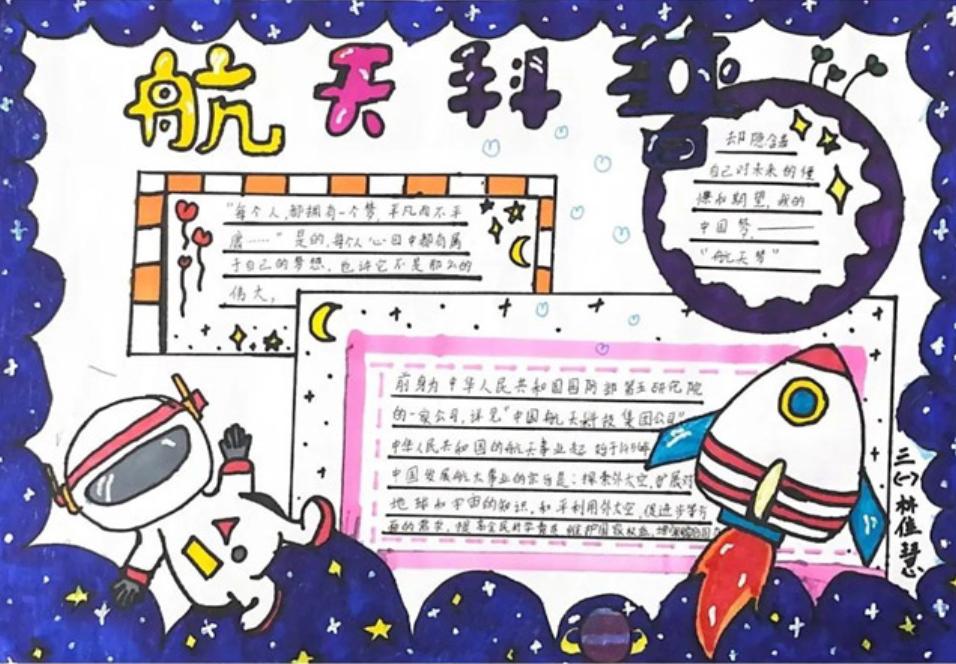 航天科普
"每个人都拥有一个梦,平凡而不平
庸……"是的,每个人心目中都有属
于自己的梦想,也许它不是那么的
伟大,
却隐含着
自己对未来的憧
憬和期望,我的
中国梦,——
"航天梦"
前身为中华人民共和国国防部第五研究院
的一家公司,详见"中国航天科技集团公司"
中华人民共和国的航天事业起始于1956
中国发展航天事业的宗旨是:探索外太空,扩展对
地球和宇宙的知识,和平利用外太空,促进
的需求,提高全民科学素质,维护国家权益,增强综合国
三(一)林佳慧